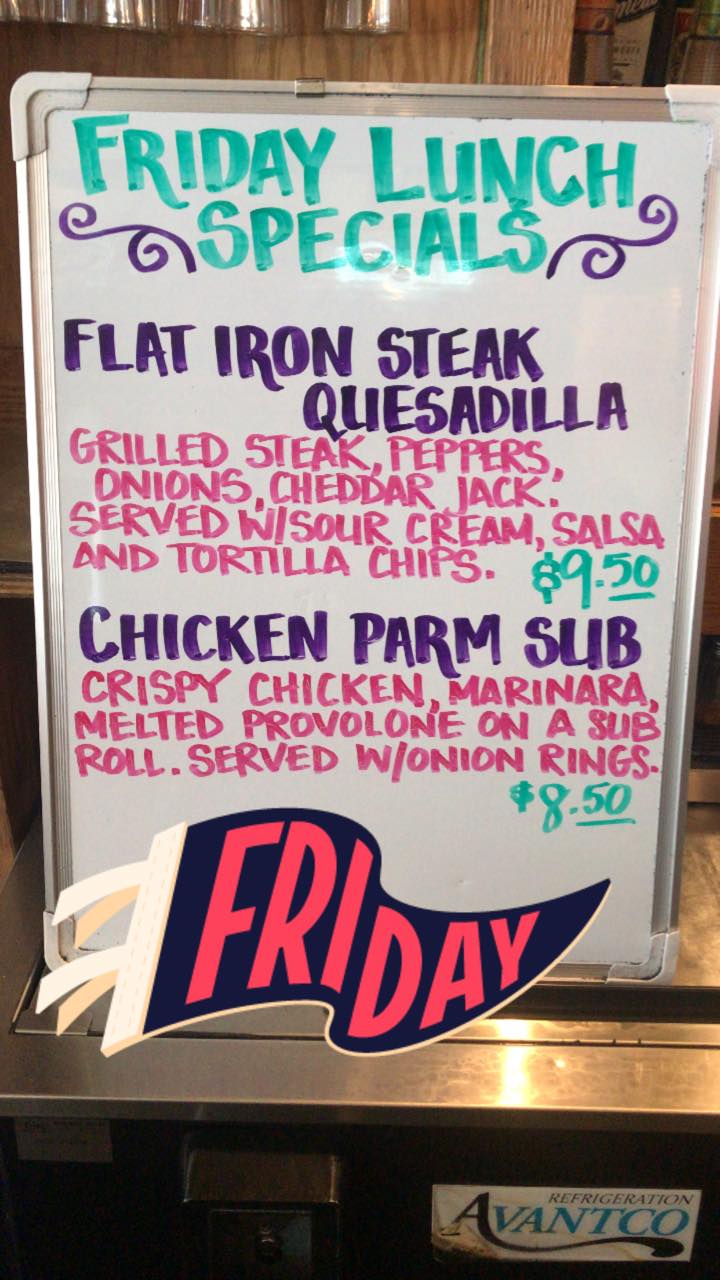 FRIDAY LUNCH
SPECIALS
FLAT IRON STEAK
QUESADILLA
GRILLED STEAK, PEPPERS,
ONIONS, CHEDDAR JACK.
SERVED W/SOUR CREAM, SALSA
AND TORTILLA CHIPS. $9.50
CHICKEN PARM SUB
CRISPY CHICKEN, MARINARA,
MELTED PROVOLONE ON A SUB
ROLL. SERVED W/ONION RINGS.
$8.50
FRIDAY
REFRIGERATION
AVANTCO